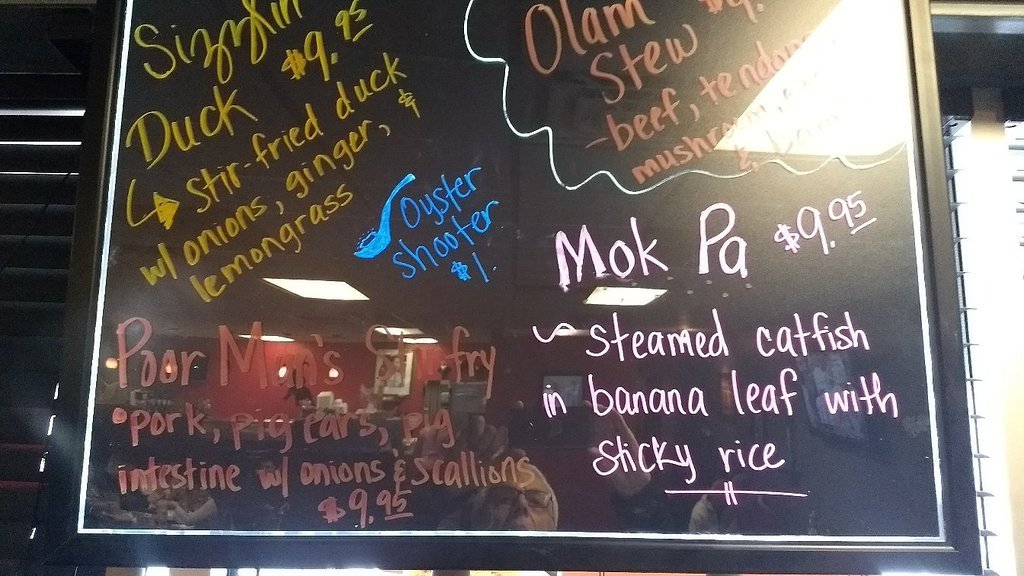 Sizzlin
$9.95
Duck
stir-fried duck
w/ onions, ginger, &
lemongrass
Oyster
shooter
$1.
Olam
Stew
- beef, tendon,
mushroom,
&
Mok Pa $9.95
~ steamed catfish
in banana leaf with
sticky rice
Poor Man's Stir fry
• pork, pig ears, pig
intestine w/ onions & scallions
$9.95